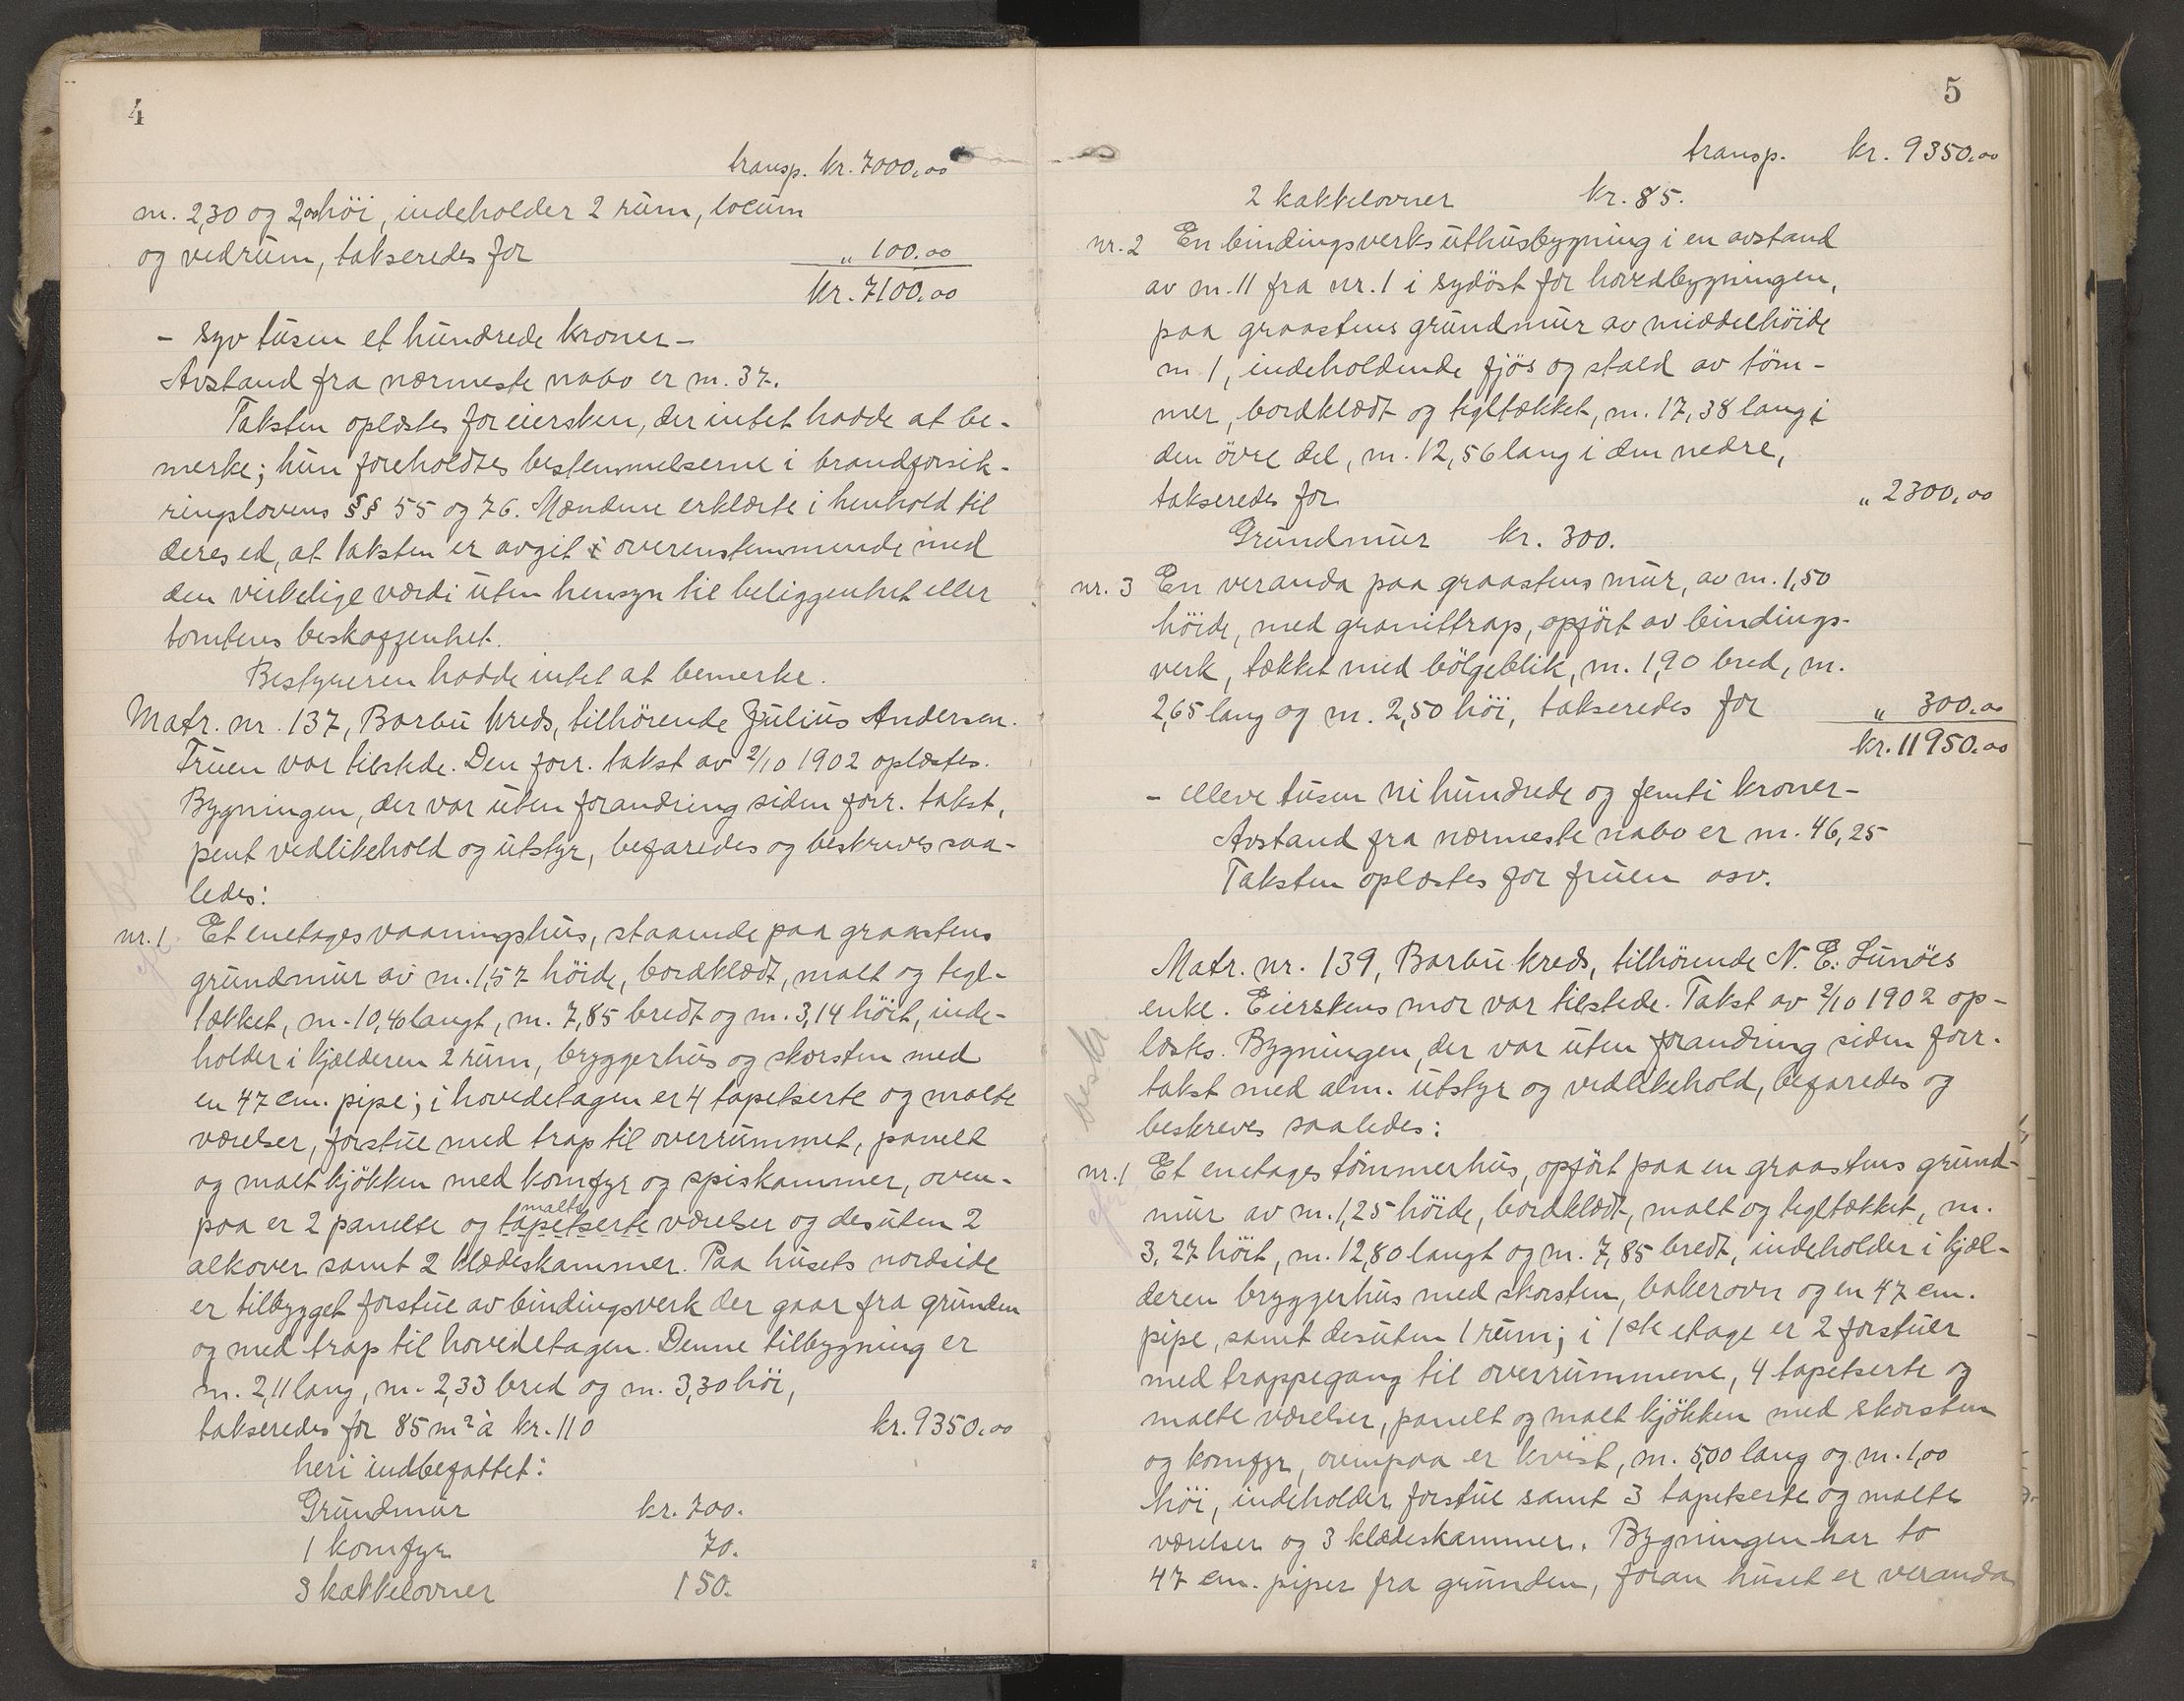 4
transp. kr. 7000,00
m. 2,30 og 2,00 höi, indeholder 2 rum, locum
og vedrum, takseredes for „ 100.00
kr. 7100,00
- syv tusen et hundrede kroner -
Avstand fra nærmeste nabo er m. 37.
Taksten oplæstes for eiersken, der intet hadde at be-
merke; hun foreholdtes bestemmelserne i brandforsik-
ringslovens §§ 55 og 76. Mændene erklærte i henhold til
deres ed, at taksten er avgit overenstemmende med
den virkelige værdi uten hensyn til beliggenhet eller
tomtens beskaffenhet.
Bestyreren hadde intet at bemerke.
Matr. nr. 137, Barbu kreds, tilhörende Julius Andersen.
Fruen var tilstede. Den forr. takst av 2/10 1902 oplæstes.
Bygningen, der var uten forandring siden forr. takst,
pent vedlikehold og utstyr, befaredes og beskrives saa-
ledes:
nr. 1 Et enetages vaaningshus, staaende paa graastens
grundmur av m. 1,57 höide, bordklædt, malt og tegl-
tækket, m. 10,40 langt, m. 7,85 bredt og m. 3,14 höit, inde-
holder i kjælderen 2 rum, bryggerhus og skorsten med
en 47 cm. pipe; i hovedetagen er 4 tapetserte og malte
værelser, forstue med trap til overrummet, panelt
og malt kjökken med komfyr og spiskammer, oven-
malte
paa er 2 panelte og tapetserte værelser og desuten 2
alkover samt 2 klædeskammer. Paa husets nordside
er tilbygget forstue av bindingsverk der gaar fra grunden
og med trap til hovedetagen. Denne tilbygning er
m. 2,11 lang, m. 2,33 bred og m. 3,30 höi,
takseredes for 85 m² à kr. 110 kr. 9350.00
heri indbefattet:
Grundmur kr. 700.
1 komfyr 70.
3 kakkelovner 150.
5
transp. kr. 9350,00
2 kakkelovner kr. 85.
nr. 2 En bindingsverks uthusbygning i en avstand
av m. 11 fra nr. 1 i sydöst for hovedbygningen,
paa graastens grundmur av middelhöide
m 1, indeholdende fjös og stald av töm-
mer, bordklædt og tegltækket, m. 17,38 lang i
den övre del, m. 12,56 lang i den nedre,
takseredes for „ 2300,00
Grundmur kr. 300.
nr. 3 En veranda paa graastens mur, av m. 1,50
höide, med granittrap, opfört av bindings-
verk, tækket med bölgeblik, m. 1,90 bred, m.
2,65 lang og m. 2,50 höi, takseredes for „ 300.00
kr. 11950.00
- elleve tusen ni hundrede og femti kroner -
Avstand fra nærmeste nabo er m. 46,25
Taksten oplæstes for fruen osv.
Matr. nr. 139, Barbu kreds, tilhörende N. E. Lunöes
enke. Eierskens mor var tilstede. Takst av 2/10 1902 op-
læstes. Bygningen, der var uten forandring siden forr.
takst med alm. utstyr og vedlikehold, befaredes og
beskreves saaledes:
nr. 1 Et enetages tömmerhus, opfört paa en graastens grund-
mur av m. 1,25 höide, bordklædt, malt og tegltækket, m.
3,27 höit, m. 12,80 langt og m. 7,85 bredt, indeholder i kjæl-
deren bryggerhus med skorsten, bakerovn og en 47 cm.
pipe, samt desuten 1 rum; i 1ste etage er 2 forstuer
med trappegang til overrummene, 4 tapetserte og
malte værelser, panelt og malt kjökken med skorsten
og komfyr, ovenpaa er kvist, m. 5,00 lang og m. 1,00
höi, indeholder forstue samt 3 tapetserte og malte
værelser og 3 klædeskammer. Bygningen har to
47 cm. piper fra grunden, foran huset er veranda